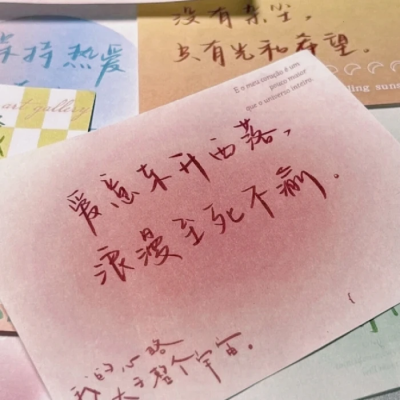 没有杂尘，
只有光和希望。
保持热爱
art gallery
E o meu coração é um
pouco maior
que o universo inteiro.
爱意东升西落，
浪漫至死不渝。
我的心略
大于整个宇宙。